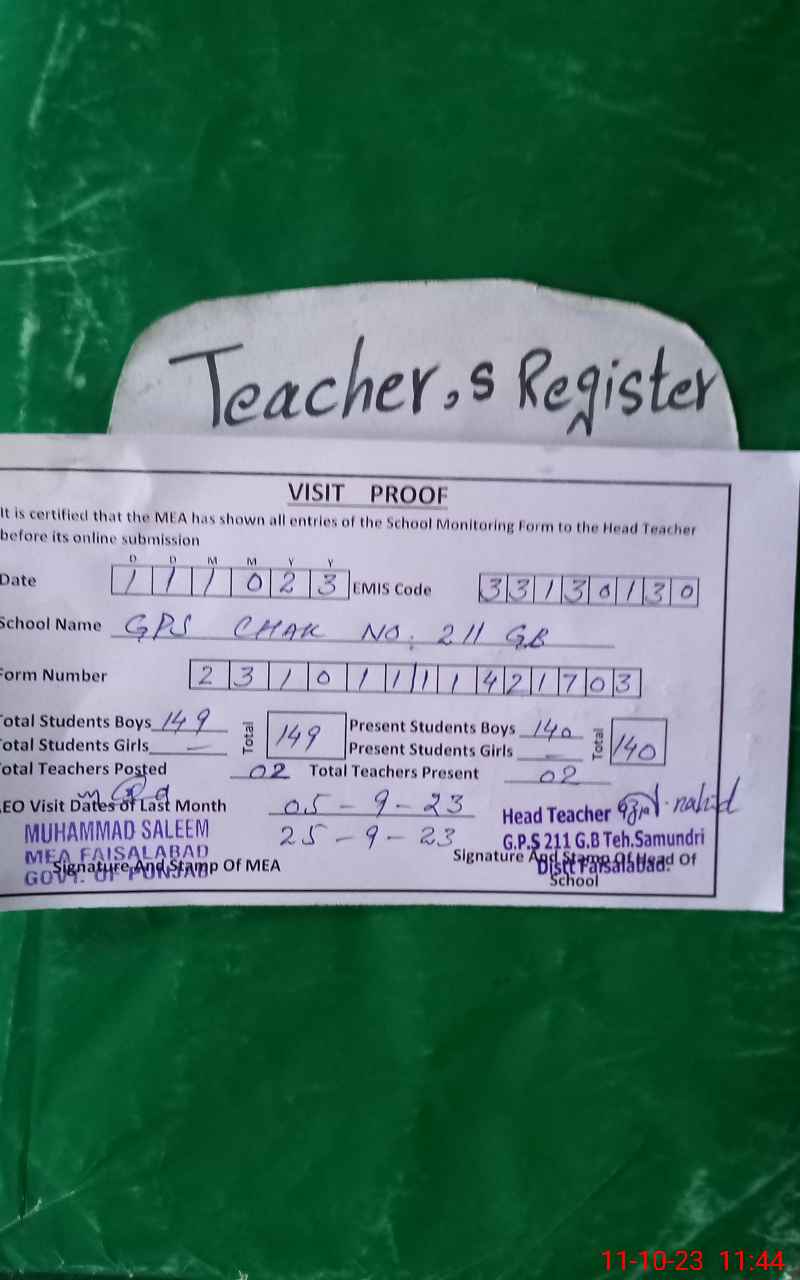 Teacher,s Register
VISIT PROOF
It is certified that the MEA has shown all entries of the School Monitoring Form to the Head Teacher
before its online submission
D D M M Y Y
Date 1 1 1 0 2 3 EMIS Code 3 3 1 3 0 1 3 0
School Name GPS CHAK NO. 211 GB
Form Number 2 3 1 0 1 1 1 1 4 2 1 7 0 3
Total Students Boys 149 Total 149 Present Students Boys 140 Total 140
Total Students Girls — Present Students Girls —
Total Teachers Posted 02 Total Teachers Present 02
AEO Visit Dates of Last Month 05-9-23
25-9-23
MUHAMMAD SALEEM
MEA FAISALABAD
GOVT. OF PUNJAB
Signature And Stamp Of MEA
Head Teacher nahid
G.P.S 211 G.B Teh.Samundri
Distt Faisalabad.
Signature And Stamp Of Head Of
School
11-10-23 11:44